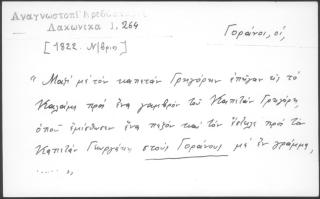 Αναγνωστοπ
Λακωνικά Ι, 264
[1822. Ν/βριος]
Γοράνοι, οἱ,
"Μαζὶ μὲ τὸν καπετὰν Γρηγόρην ἐπῆγαν εἰς τὸ
πρὸς ἕνα γαμβρὸν τοῦ Καπετὰν Γρηγόρη,
ὁποῦ ἐμίσθωσεν ἕνα πεζὸν καὶ τὸν ἔστειλε πρὸς τὸν
Καπετὰν Γιωργάκη στοὺς Γοράνους μὲ ἓν γράμμα,
......"